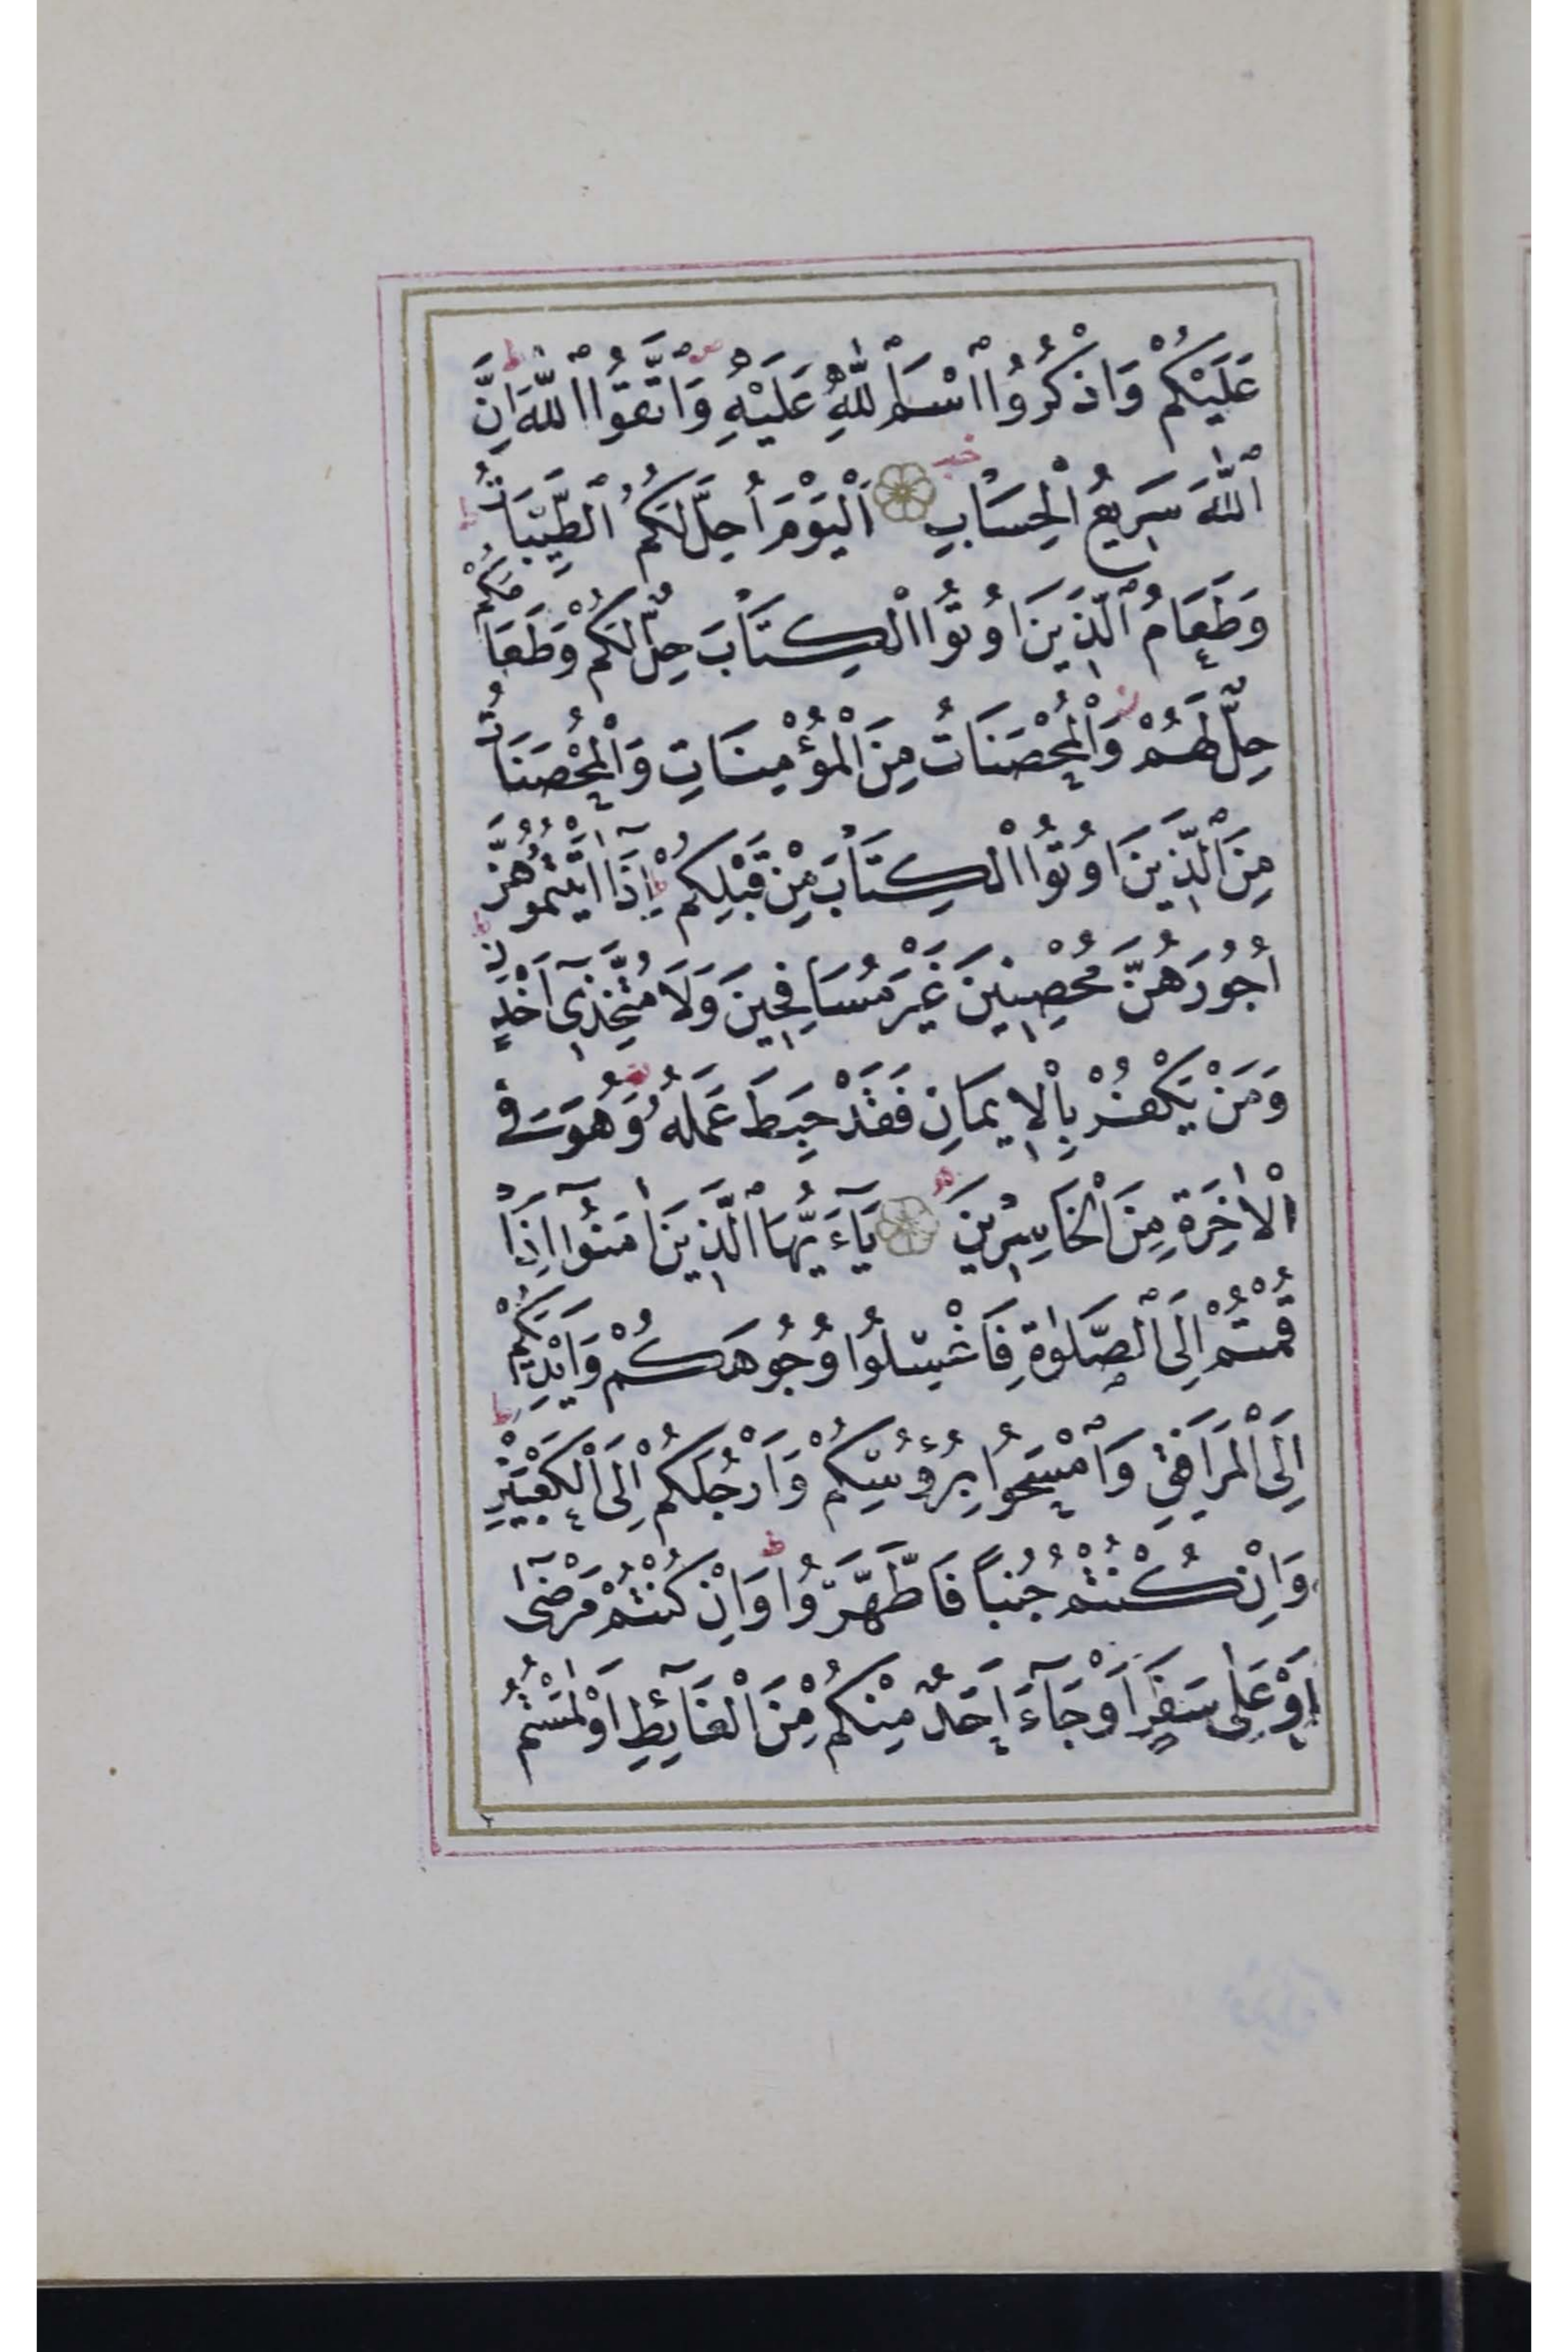 عَلَيْكُمْ وَاذْكُرُوا اسْمَ اللّٰهِ عَلَيْهِ وَاتَّقُوا اللّٰهَ اِنَّ
اللّٰهَ سَرِيعُ الْحِسَابِ اَلْيَوْمَ اُحِلَّ لَكُمُ الطَّيِّبَاتُ
وَطَعَامُ الَّذِينَ اُوتُوا الْكِتَابَ حِلٌّ لَكُمْ وَطَعَامُكُمْ
حِلٌّ لَهُمْ وَالْمُحْصَنَاتُ مِنَ الْمُؤْمِنَاتِ وَالْمُحْصَنَاتُ
مِنَ الَّذِينَ اُوتُوا الْكِتَابَ مِنْ قَبْلِكُمْ اِذَٓا اٰتَيْتُمُوهُنَّ
اُجُورَهُنَّ مُحْصِنِينَ غَيْرَ مُسَافِحِينَ وَلَا مُتَّخِذِٓى اَخْدَانٍ
وَمَنْ يَكْفُرْ بِالْاِيمَانِ فَقَدْ حَبِطَ عَمَلُهُ وَهُوَ فِى
الْاٰخِرَةِ مِنَ الْخَاسِرِينَ يَٓاءَيُّهَا الَّذِينَ اٰمَنُٓوا اِذَا
قُمْتُمْ اِلَى الصَّلٰوةِ فَاغْسِلُوا وُجُوهَكُمْ وَاَيْدِيَكُمْ
اِلَى الْمَرَافِقِ وَامْسَحُوا بِرُؤُسِكُمْ وَاَرْجُلَكُمْ اِلَى الْكَعْبَيْنِ
وَاِنْ كُنْتُمْ جُنُباً فَاطَّهَّرُوا وَاِنْ كُنْتُمْ مَرْضٰٓى
اَوْ عَلٰى سَفَرٍ اَوْ جَٓاءَ اَحَدٌ مِنْكُمْ مِنَ الْغَٓائِطِ اَوْ لٰمَسْتُمُ